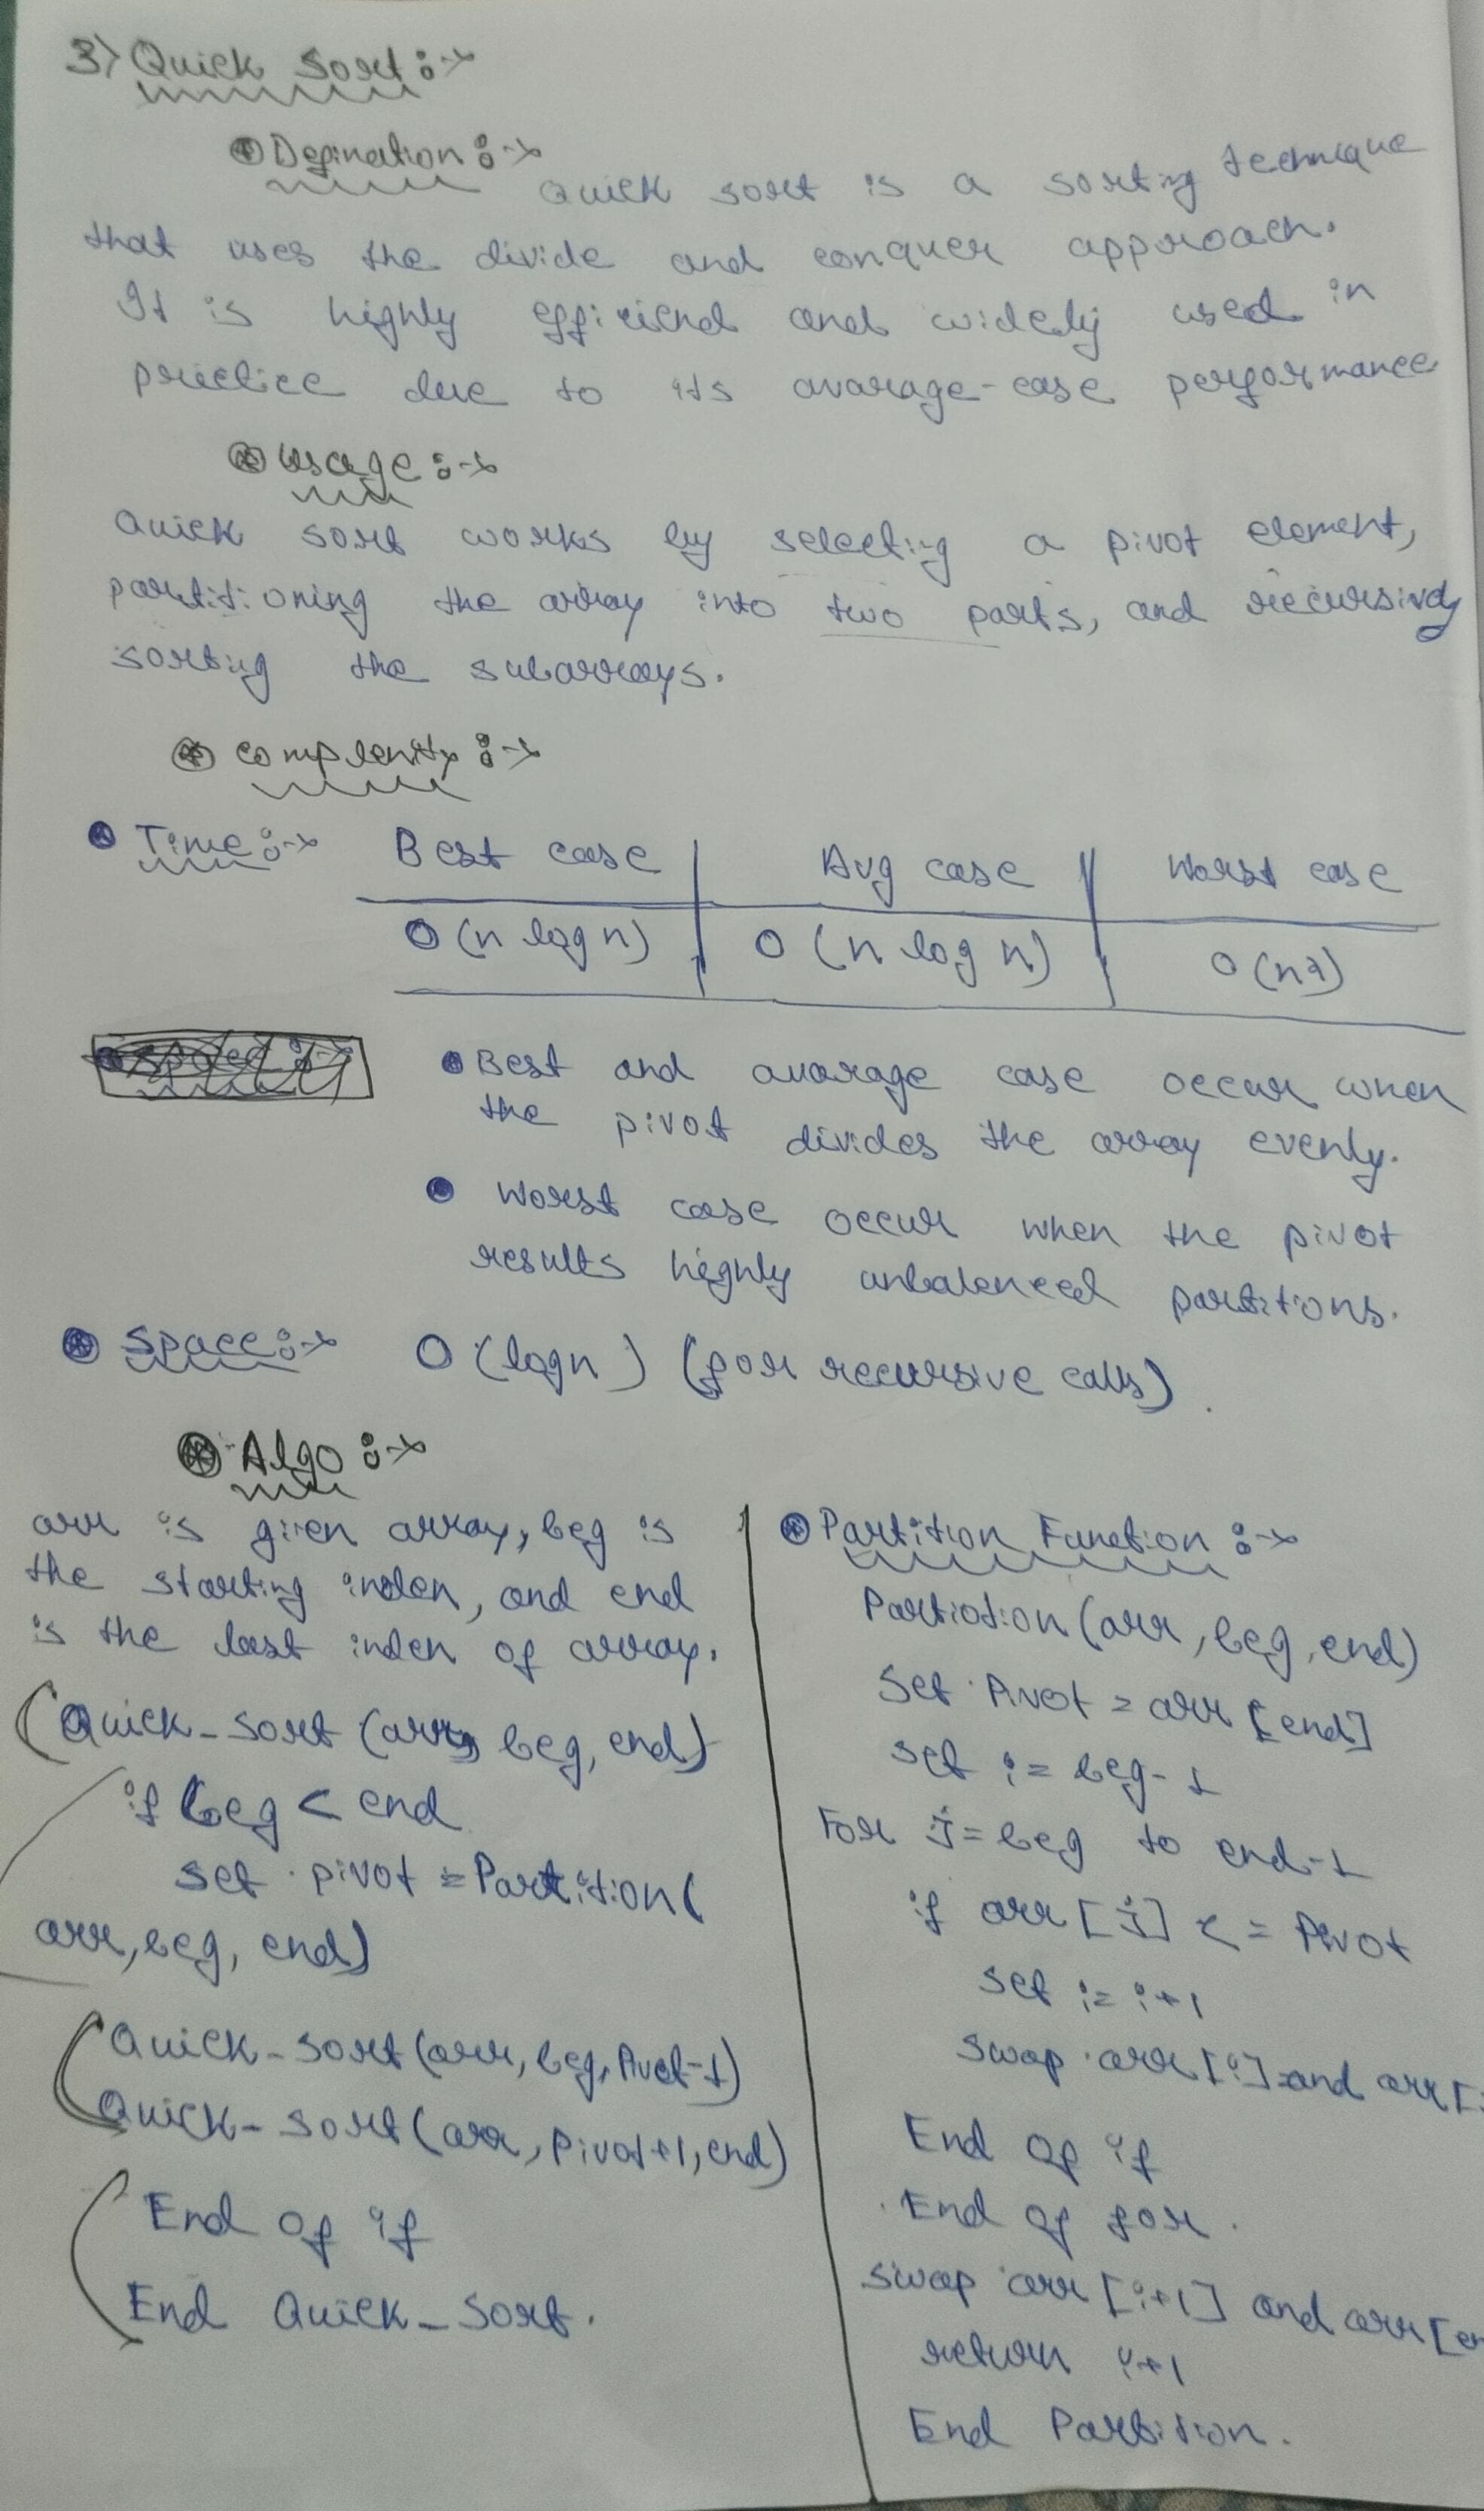 3) Quick Sort :->
Defination :->
Quick sort is a sorting technique
that uses the divide and conquer approach.
It is highly efficiend and widely used in
prectice due to its avarage-case performance
Usage :->
Quick sort works by selecting a pivot element,
partitioning the array into two parts, and recursively
sorting the subarrays.
Complexity :->
Time :-> Best case | Avg case | Worst case
O(n log n) | O(n log n) | O(n²)
Best and avarage case occur when
the pivot divides the array evenly.
Worst case occur when the pivot
results highly unbalenced partitions.
Space :-> O(logn) (for recursive calls).
Algo :->
arr is given array, beg is
the starting index, and end
is the last index of array.
Quick-sort (arr, beg, end)
if beg < end
set pivot = Partition(
arr, beg, end)
Quick-sort(arr, beg, Pivot-1)
Quick-sort(arr, pivot+1, end)
End of if
End Quick-Sort.
Partition Function :->
Partiotion(arr, beg, end)
Set Pivot = arr [end]
set i = beg-1
For j = beg to end-1
if arr [j] <= Pivot
set i = i+1
Swap arr[i] and arr[
End of if
End of for.
Swap arr [i+1] and arr[en
return i+1
End Partition.